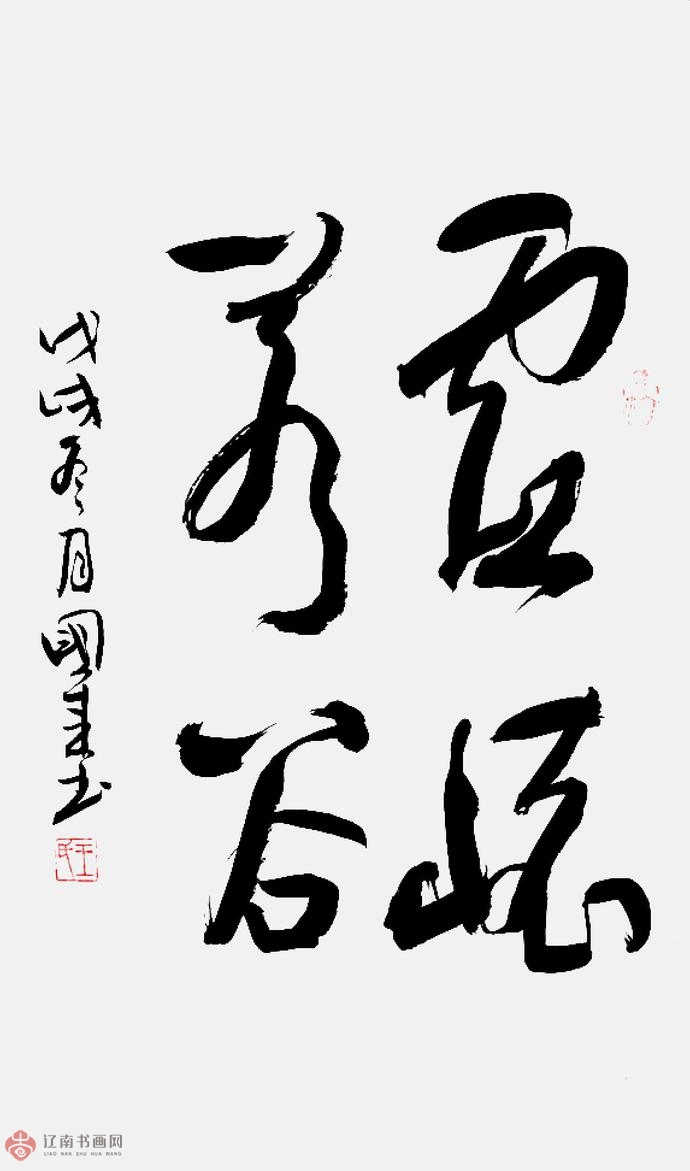 虚怀
若谷
戊戌冬月国来书
辽南书画网
LIAO NAN SHU HUA WANG